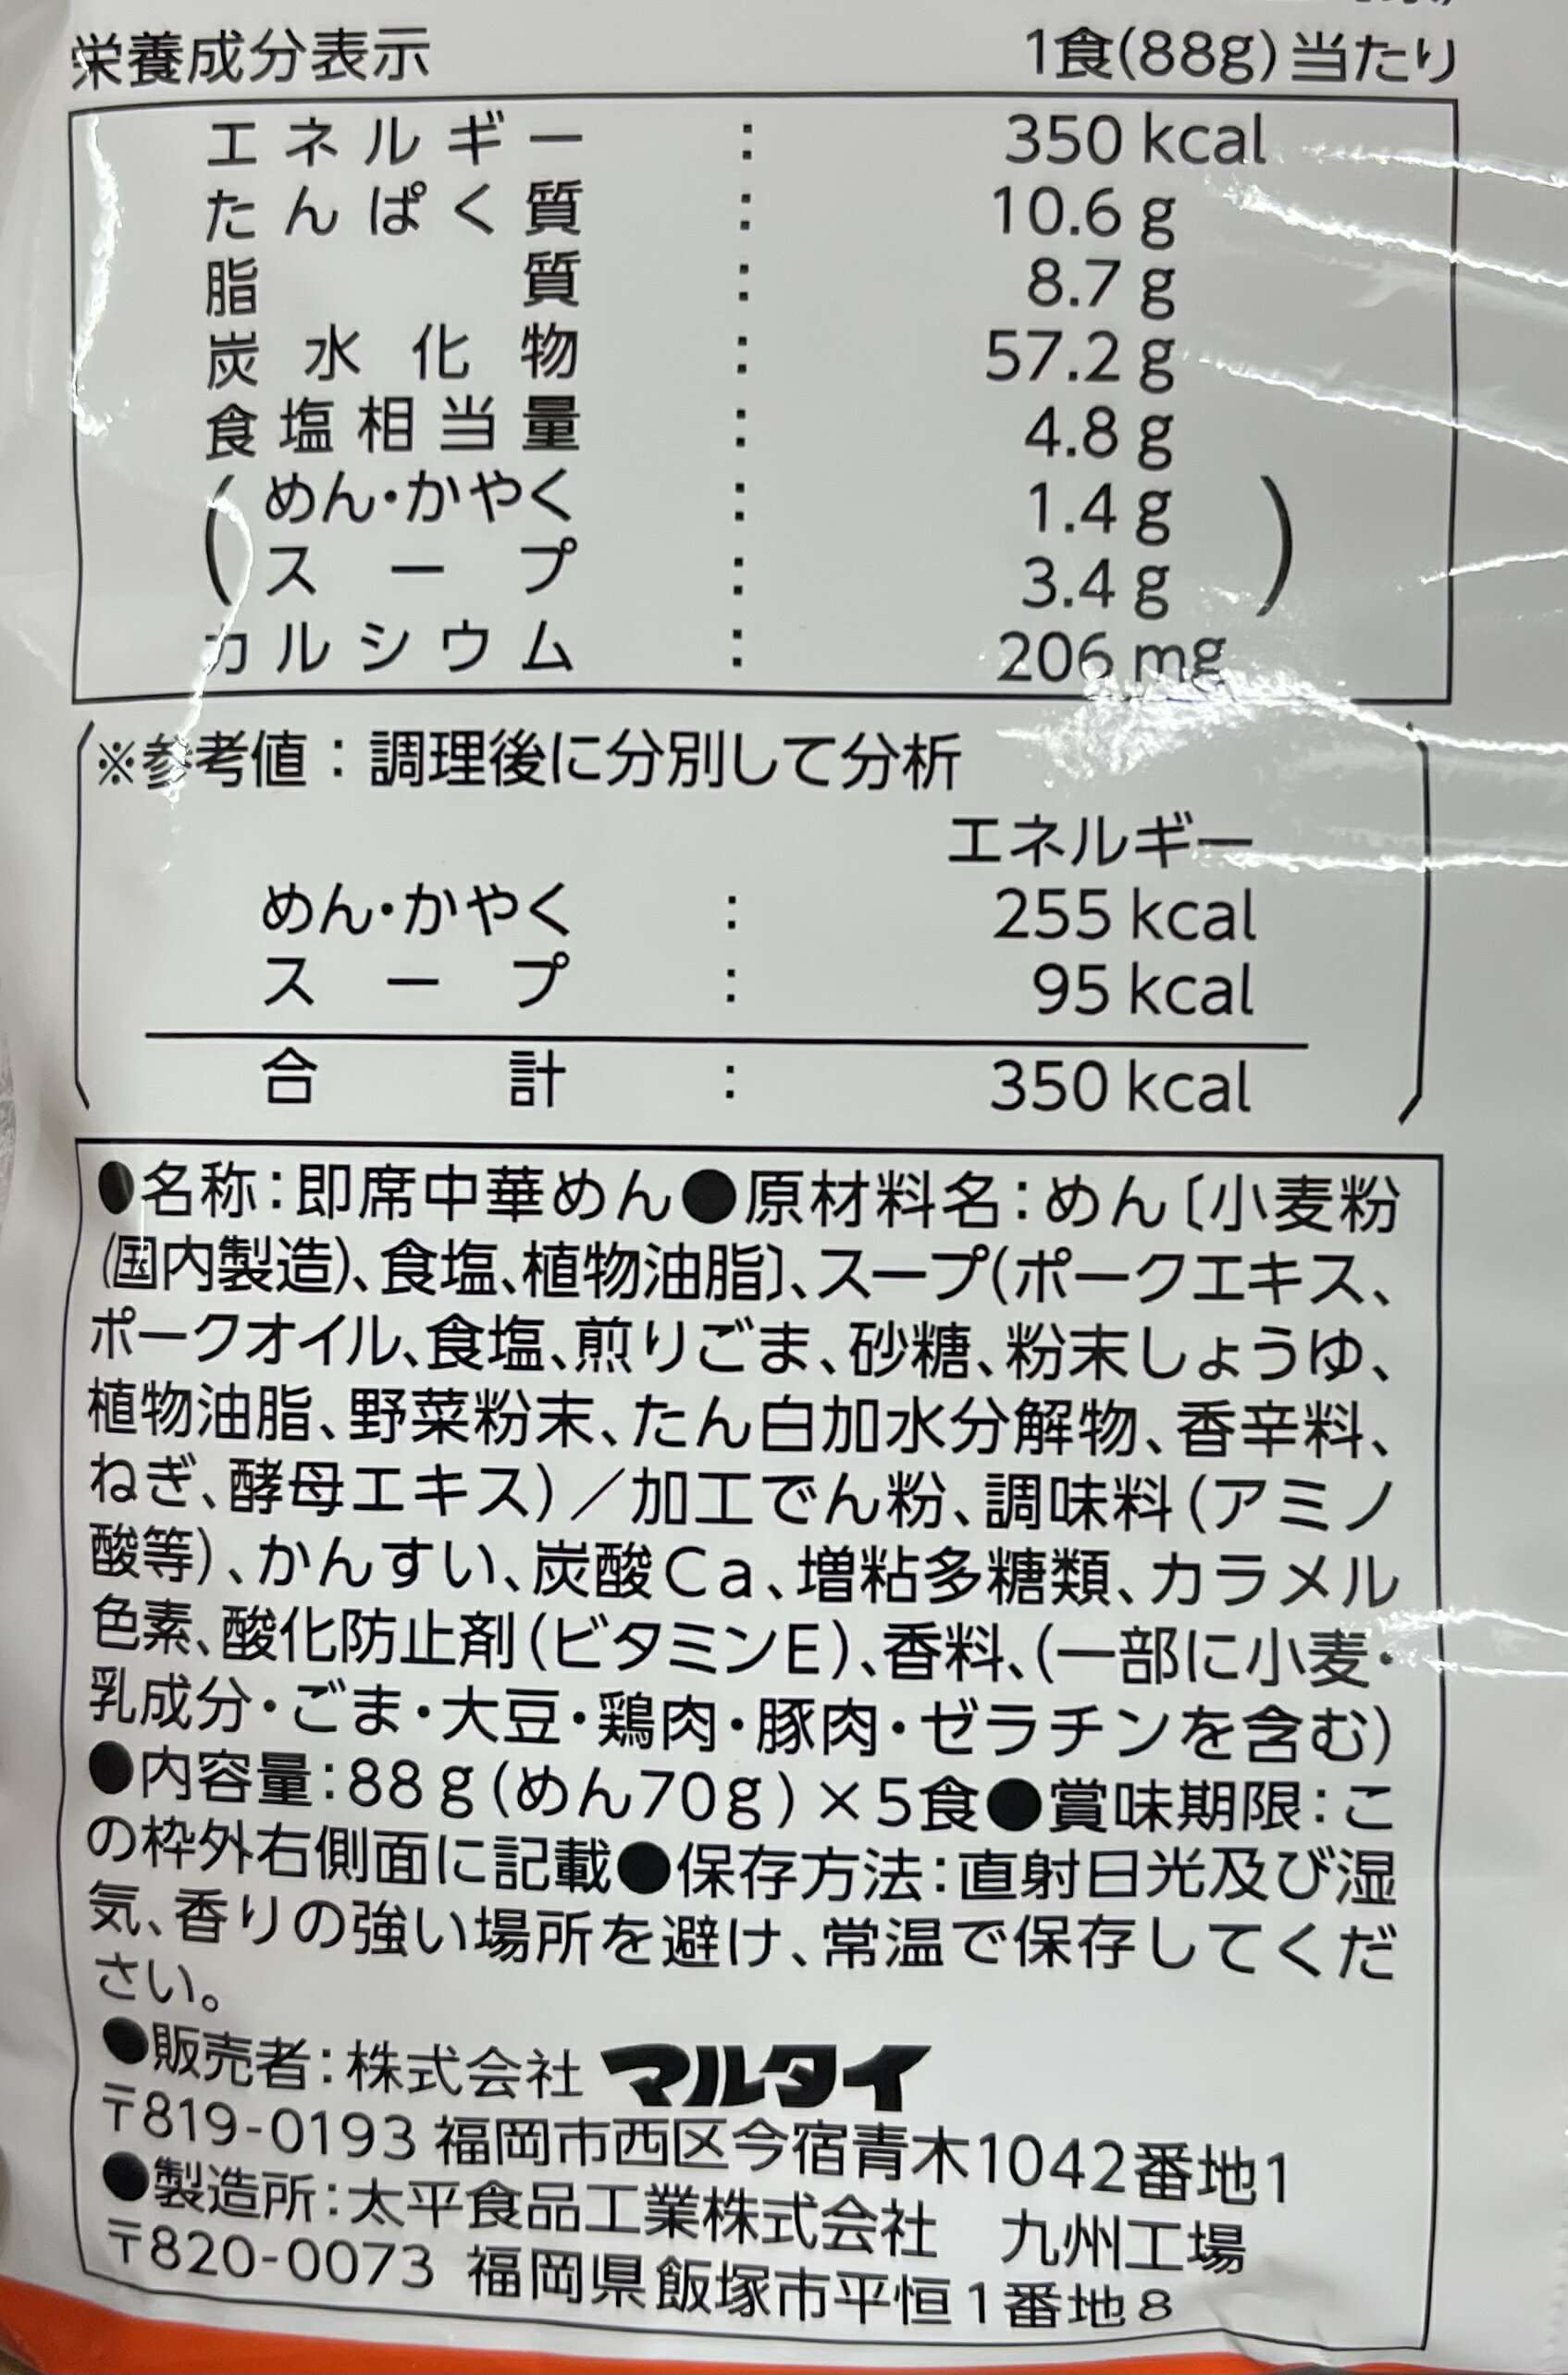 栄養成分表示 1食(88g)当たり
エネルギー : 350 kcal
たんぱく質 : 10.6 g
脂質 : 8.7 g
炭水化物 : 57.2 g
食塩相当量 : 4.8 g
(めん・かやく : 1.4 g
スープ : 3.4 g)
カルシウム : 206 mg
※参考値:調理後に分別して分析
エネルギー
めん・かやく : 255 kcal
スープ : 95 kcal
合計 : 350 kcal
●名称:即席中華めん●原材料名:めん〔小麦粉
(国内製造)、食塩、植物油脂〕、スープ(ポークエキス、
ポークオイル、食塩、煎りごま、砂糖、粉末しょうゆ、
植物油脂、野菜粉末、たん白加水分解物、香辛料、
ねぎ、酵母エキス)/加工でん粉、調味料(アミノ
酸等)、かんすい、炭酸Ca、増粘多糖類、カラメル
色素、酸化防止剤(ビタミンE)、香料、(一部に小麦・
乳成分・ごま・大豆・鶏肉・豚肉・ゼラチンを含む)
●内容量:88g(めん70g)×5食●賞味期限:こ
の枠外右側面に記載●保存方法:直射日光及び湿
気、香りの強い場所を避け、常温で保存してくだ
さい。
●販売者:株式会社 マルタイ
〒819-0193 福岡市西区今宿青木1042番地1
●製造所:太平食品工業株式会社 九州工場
〒820-0073 福岡県飯塚市平恒1番地8